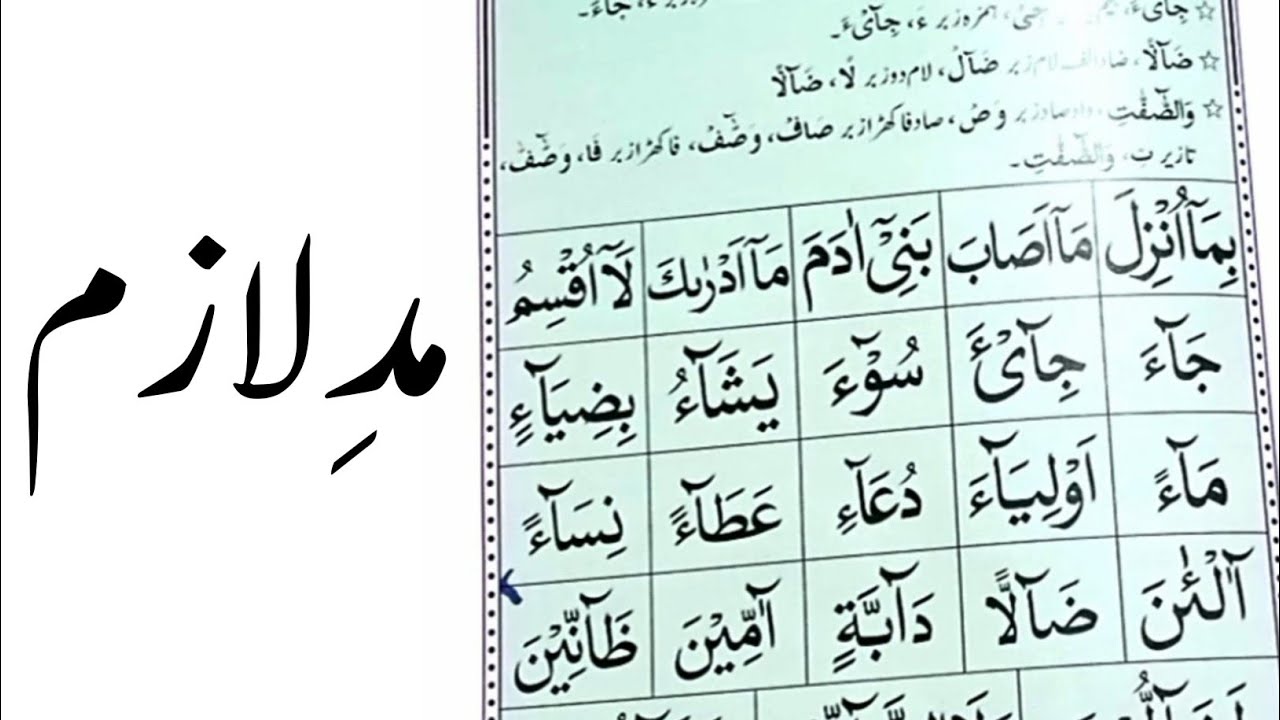 مدِ لازم
☆ جِآیْءَ، جِیْ، ہمزہ زبر ءَ، جِآیْءَ۔
☆ ضَآلًّا، ضاد الف لام زبر ضَآلْ، لام دو زبر لًا، ضَآلًّا
☆ وَالصّٰٓفّٰتِ، واو صاد زبر وَصْ، صاد فا کھڑا زبر صَافْ، وَصّٰٓفْ، فا کھڑا زبر فَا، وَصّٰٓفّٰ،
تا زیر تِ، وَالصّٰٓفّٰتِ۔
بِمَآاُنْزِلَ مَآاَصَابَ بَنِیْٓ اٰدَمَ مَآاَدْرٰىكَ لَآاُقْسِمُ
جَآءَ جِآیْٔءَ سُوْٓءَ یَشَآءُ بِضِیَآءٍ
مَآءً اَوْلِیَآءَ دُعَآءِ عَطَآءً نِسَآءً
آٰلْـٰٔنَ ضَآلًّا دَآبَّةٍ آٰمِّیْنَ ظَآنِّیْنَ